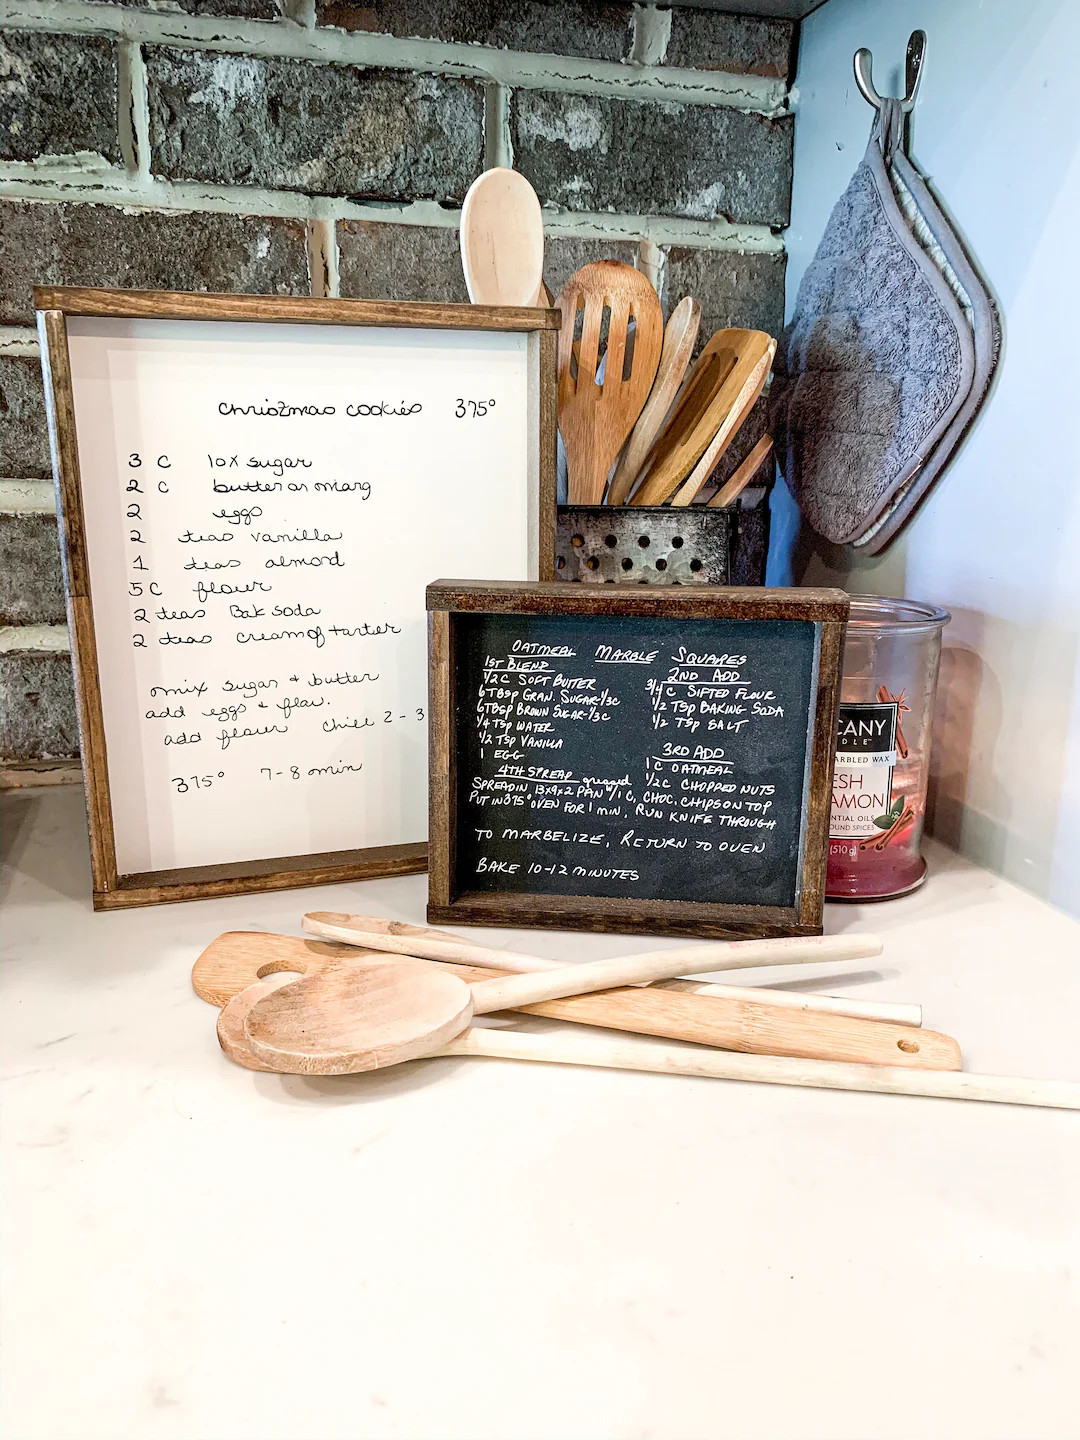 Christmas cookies 375°
3 C 10x sugar
2 C butter or marg
2 eggs
2 teas vanilla
1 teas almond
5 C flour
2 teas Bak soda
2 teas cream of tarter
mix sugar + butter
add eggs + flav.
add flour chill 2-3
375° 7-8 min
OATMEAL MARBLE SQUARES
1ST BLEND
1/2 C SOFT BUTTER
6 TBSP GRAN. SUGAR-1/3C
6 TBSP BROWN SUGAR-1/3C
1/4 TSP WATER
1/2 TSP VANILLA
1 EGG
2ND ADD
3/4 C SIFTED FLOUR
1/2 TSP BAKING SODA
1/2 TSP SALT
3RD ADD
1 C OATMEAL
1/2 C CHOPPED NUTS
4TH SPREAD
SPREAD IN greased 13x9x2 PAN W/1 C, CHOC. CHIPS ON TOP
PUT IN 375° OVEN FOR 1 MIN, RUN KNIFE THROUGH
TO MARBELIZE, RETURN TO OVEN
BAKE 10-12 MINUTES
CANY
DLE™
ARBLED WAX
ESH
AMON
NTIAL OILS
OUND SPICES
(510 g)